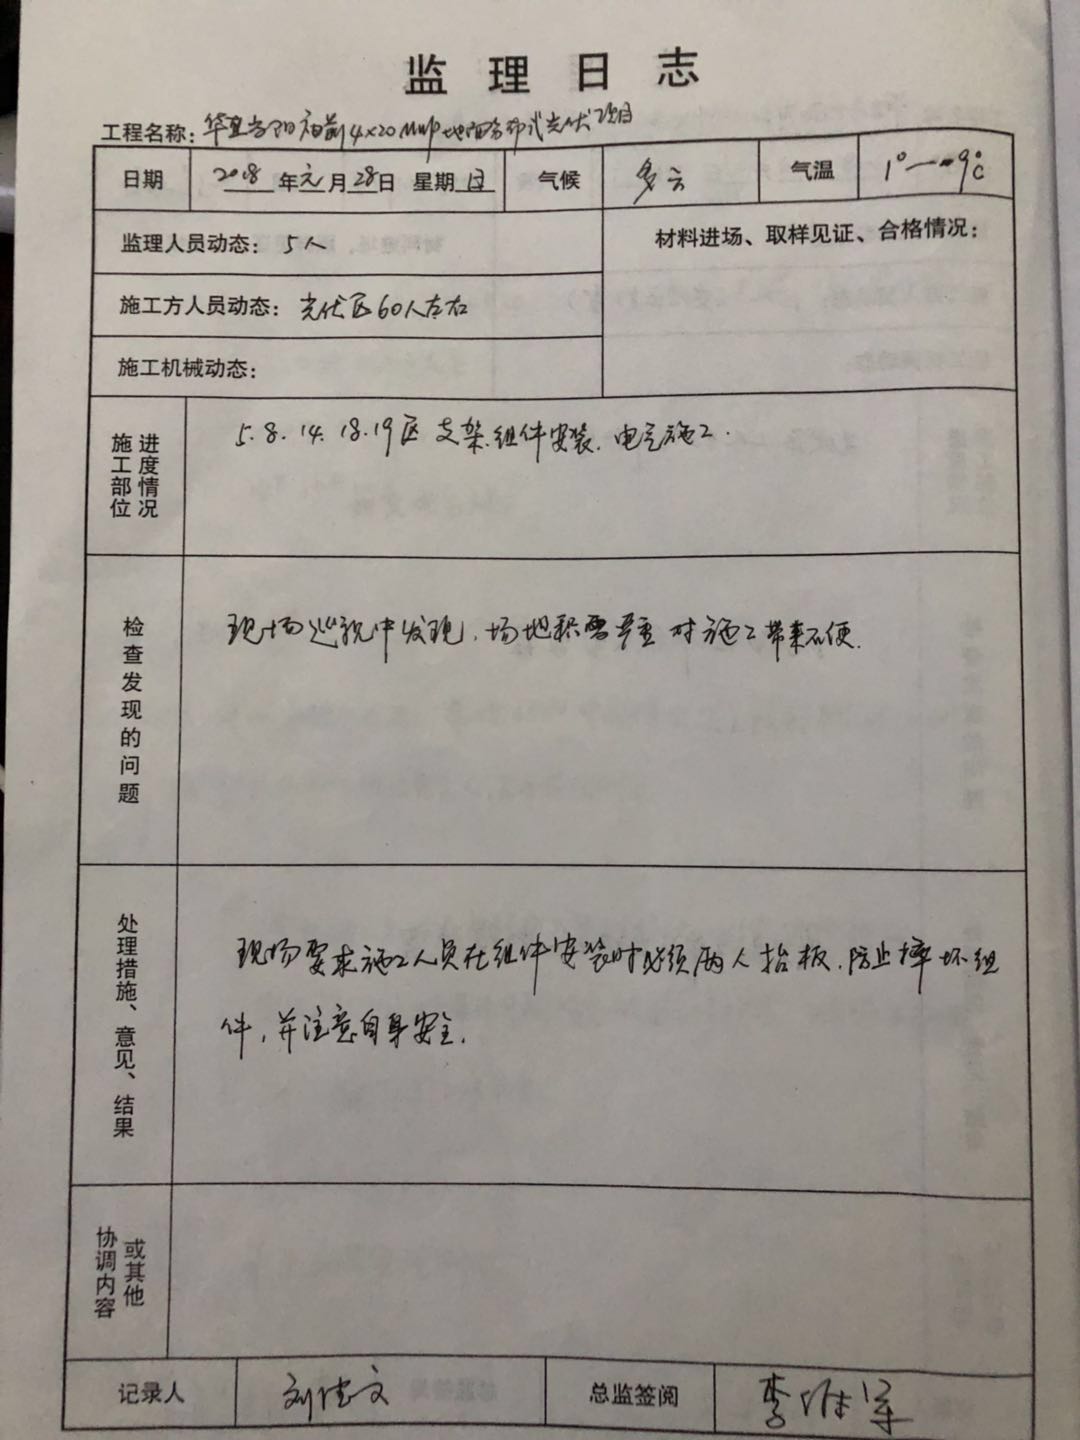 监理日志
工程名称：华重当阳初前4×20MWp地面分布式光伏项目
日期 2018年元月28日 星期日 气候 多云 气温 1°—9℃
监理人员动态：5人
材料进场、取样见证、合格情况：
施工方人员动态：光伏区60人左右
施工机械动态：
施工部位 进度情况
5.8.14.18.19区支架.组件安装.电气施工.
检查发现的问题
现场巡视中发现，场地积雪严重对施工带来不便.
处理措施、意见、结果
现场要求施工人员在组件安装时必须两人抬板.防止摔坏组
件，并注意自身安全.
协调内容 或其他
记录人 刘佳文 总监签阅 李